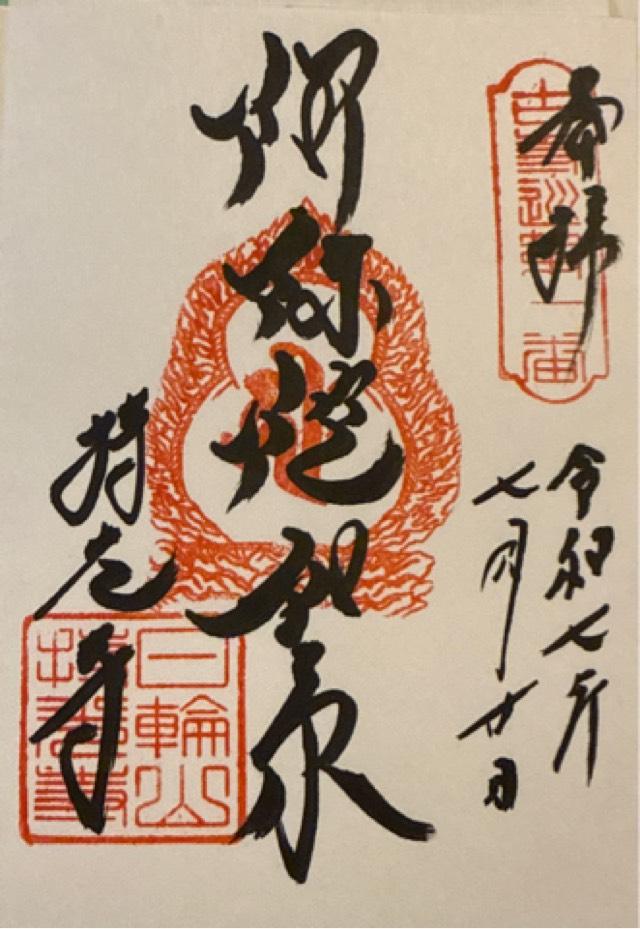 奉拝
一番
令和七年
七月廿日
阿弥陀如来
持光寺
日輪山